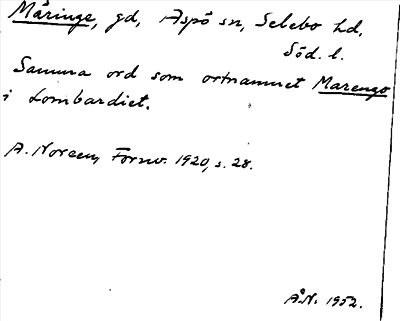 Måringe, gd, Aspö sn, Selebo hd,
Söd. l.
Samma ord som ortnamnet Marengo
i Lombardiet.
A. Noreen, Fornv. 1920, s. 28.
Å.N. 1952.